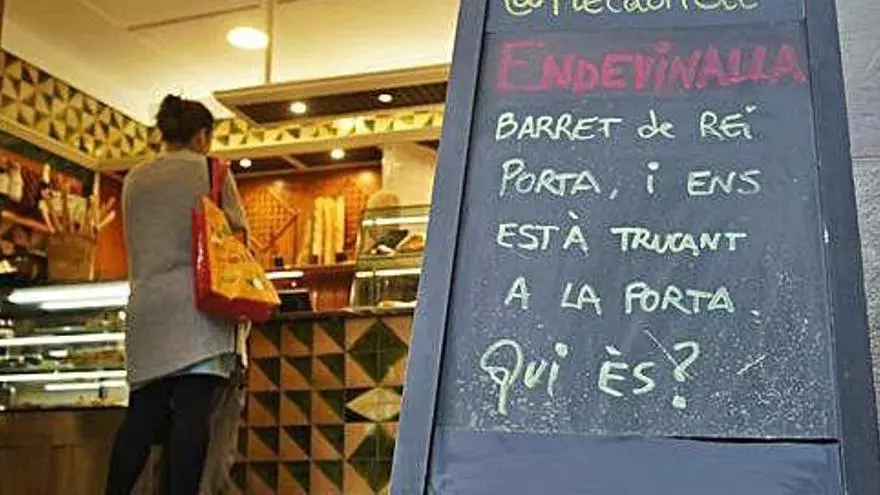 ENDEVINALLA
BARRET de REi
PORTA, i ENS
ESTÀ TRUCANT
A LA PORTA.
Qui ÈS?